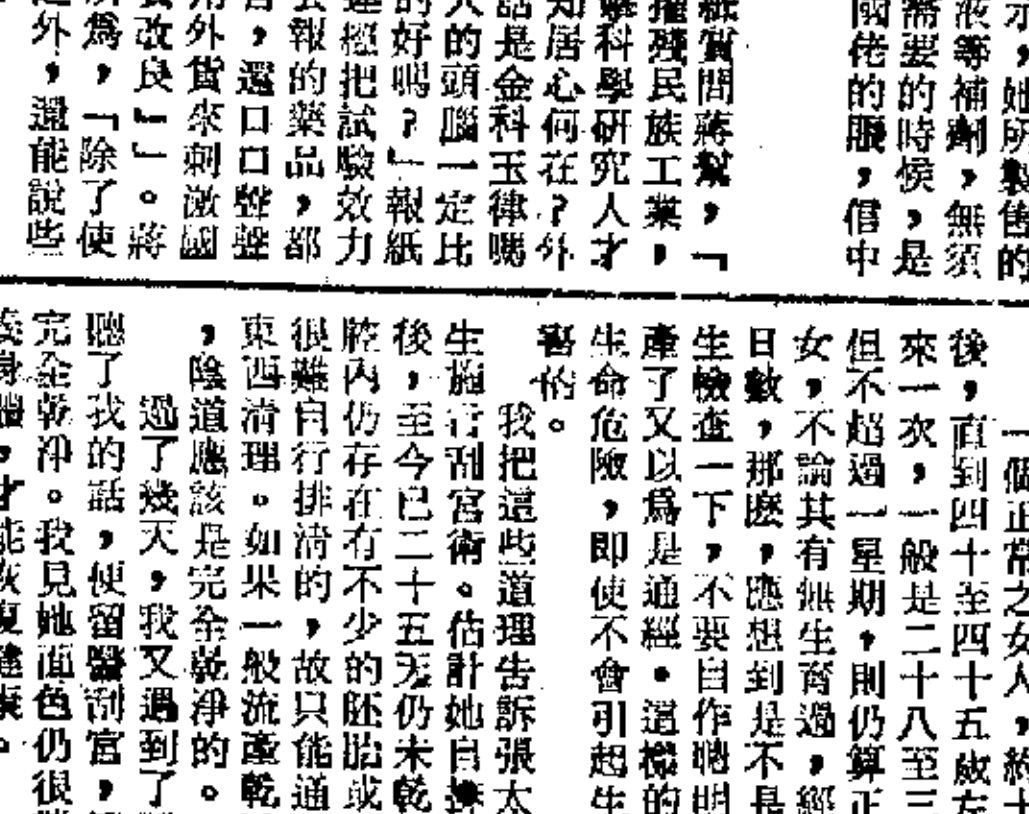 示，她所製售的
液等補劑，無須
需要的時候，是
國佬的賬，借中
紙質問蔣幫，「
摧殘民族工業，
擊科學研究人才
知居心何在？外
話是金科玉律嗎
人的頭腦一定比
的好嗎？」報紙
經把試驗效力
報的藥品，都
，還口口聲聲
用外貨來刺激國
改良」。蔣
爲，「除了使
外，還能說些
一個正常之女人，約十
後，直到四十至四十五歲左
來一次，一般是二十八至三
但不超過一星期，則仍算正
女，不論其有無生育過，經
日數，那麽，應想到是不是
生檢查一下，不要自作聰明
產了又以爲是通經。這樣的
生命危險，即使不會引起生
害的。
我把這些道理告訴張太
生施行刮宮術。估計她自
後，至今已二十五天仍未乾
腔內仍存在有不少的胚胎或
很難自行排清的，故只能通
東西清理。如果一般流產乾
，陰道應該是完全乾淨的。
過了幾天，我又遇到了
聽了我的話，便留醫刮宮，
完全乾淨。我見她面色仍很
身體，才能恢復健康。